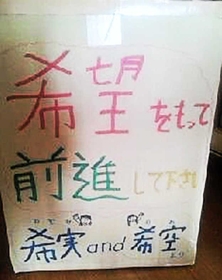 希望をもって
前進して下さい
希実and希空より